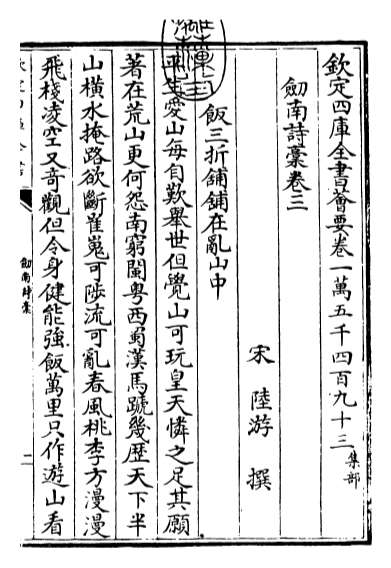 欽定四庫全書薈要卷一萬五千四百九十三集部
劒南詩藁卷三
宋 陸游 撰
飯三折舖舖在亂山中
平生愛山每自歎舉世但覺山可玩皇天憐之足其願
著在荒山更何怨南窮閩粤西蜀漢馬蹏幾歴天下半
山橫水掩路欲斷崔嵬可陟流可亂春風桃李方漫漫
飛棧凌空又奇觀但令身健能強飯萬里只作遊山看
劒南詩藁